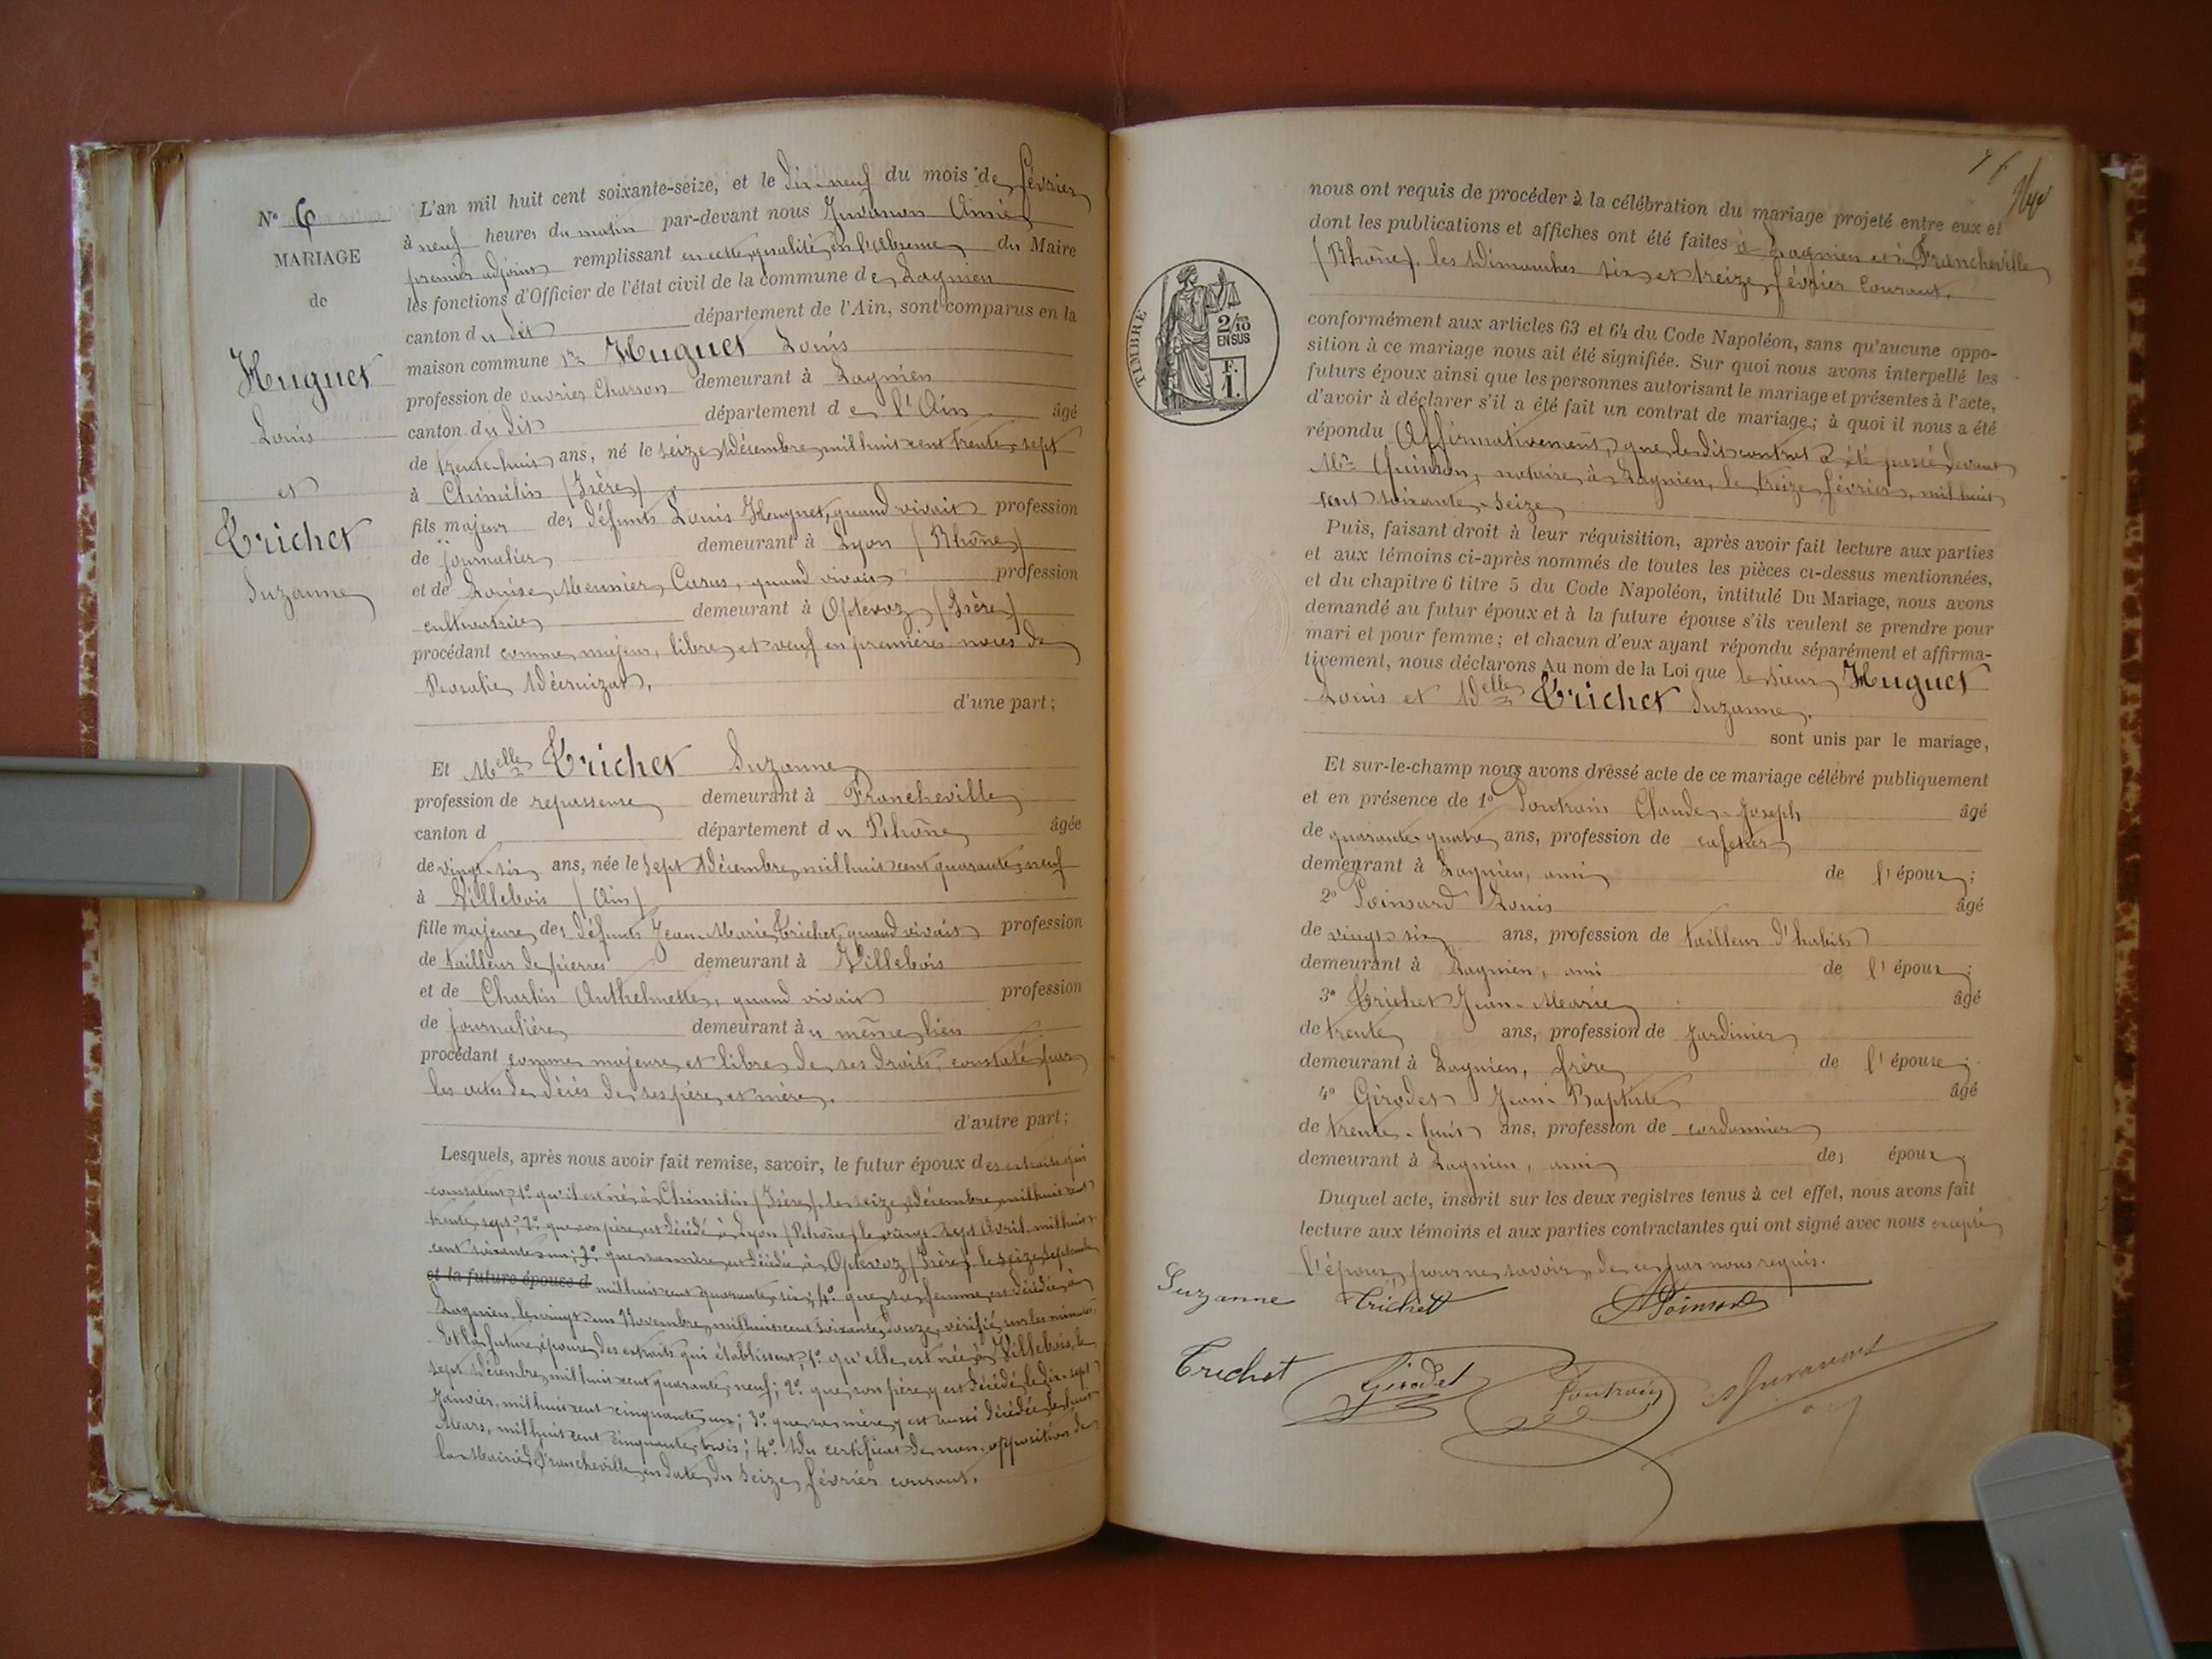 N° 6
MARIAGE
de
Huguet
Louis
et
Trichet
Suzanne
L'an mil huit cent soixante-seize, et le dix-neuf du mois de février
à neuf heures du matin par-devant nous Juvanon Aimé
premier adjoint remplissant en cette qualité, en l'absence du Maire
les fonctions d'Officier de l'état civil de la commune de Lagnieu
canton du dit département de l'Ain, sont comparus en la
maison commune Mr Huguet Louis
profession de ouvrier Charron demeurant à Lagnieu
canton du dit département de l'Ain âgé
de trente-huit ans, né le seize Décembre mil huit cent trente-sept
à Chimilin (Isère)
fils majeur des défunts Louis Huguet, quand vivait profession
de journalier demeurant à Lyon (Rhône)
et de Louise Meunier Carus, quand vivait profession
cultivatrice demeurant à Optevoz (Isère)
procédant comme majeur, libre et veuf en premières noces de
Rosalie
d'une part;
Et Melle Trichet Suzanne
profession de repasseuse demeurant à Francheville
canton d département du Rhône âgée
de vingt-six ans, née le sept Décembre mil huit cent quarante-neuf
à Villebois (Ain)
fille majeure des défunts Jean-Marie Trichet, quand vivait profession
de tailleur de pierres demeurant à Villebois
et de Charlin Anthelmette, quand vivait profession
de journalière demeurant au même lieu
procédant comme majeure et libre de ses droits, constaté par
les actes de décès de ses père et mère.
d'autre part;
Lesquels, après nous avoir fait remise, savoir, le futur époux des extraits qui
constatent, 1° qu'il est né à Chimilin (Isère), le seize Décembre mil huit cent
trente-sept; 2° que son père est décédé à Lyon (Rhône) le vingt-sept Avril mil huit
cent soixante-un; 3° que sa mère est décédée à Optevoz (Isère), le seize Septembre
et la future épouse d mil huit cent quarante-six; 4° que sa femme est décédée à
Lagnieu, le vingt-un Novembre mil huit cent soixante-douze, vérifié sur les minutes.
Et la future épouse, des extraits qui établissent, 1° qu'elle est née à Villebois, le
sept Décembre mil huit cent quarante-neuf; 2° que son père y est décédé, le dix-sept
Janvier, mil huit cent cinquante-un; 3° que sa mère y est aussi décédée, le huit
Mars, mil huit cent cinquante-trois; 4° Du certificat de non-opposition de
la Mairie de Francheville, en date du seize février courant.
TIMBRE
2/10
EN SUS
F.
1.
nous ont requis de procéder à la célébration du mariage projeté entre eux et
dont les publications et affiches ont été faites à Lagnieu et à Francheville
(Rhône), les Dimanches six et treize février Courant.
conformément aux articles 63 et 64 du Code Napoléon, sans qu'aucune oppo-
sition à ce mariage nous ait été signifiée. Sur quoi nous avons interpellé les
futurs époux ainsi que les personnes autorisant le mariage et présentes à l'acte,
d'avoir à déclarer s'il a été fait un contrat de mariage; à quoi il nous a été
répondu Affirmativement, que le dit contrat a été passé devant
Me Quinson, notaire à Lagnieu, le treize février, mil huit
cent soixante-seize
Puis, faisant droit à leur réquisition, après avoir fait lecture aux parties
et aux témoins ci-après nommés de toutes les pièces ci-dessus mentionnées,
et du chapitre 6 titre 5 du Code Napoléon, intitulé Du Mariage, nous avons
demandé au futur époux et à la future épouse s'ils veulent se prendre pour
mari et pour femme; et chacun d'eux ayant répondu séparément et affirma-
tivement, nous déclarons Au nom de la Loi que le sieur Huguet
Louis et Delle Trichet Suzanne.
sont unis par le mariage,
Et sur-le-champ nous avons dressé acte de ce mariage célébré publiquement
et en présence de 1° Poutrain Claude-Joseph âgé
de quarante-quatre ans, profession de cafetier
demeurant à Lagnieu, ami de l'époux;
2° Poinsard Louis âgé
de vingt-six ans, profession de tailleur d'habits
demeurant à Lagnieu, ami de l'époux;
3° Trichet Jean-Marie âgé
de trente ans, profession de Jardinier
demeurant à Lagnieu, frère de l'épouse;
4° Girodet Jean-Baptiste âgé
de trente-huit ans, profession de cordonnier
demeurant à Lagnieu, ami des époux.
Duquel acte, inscrit sur les deux registres tenus à cet effet, nous avons fait
lecture aux témoins et aux parties contractantes qui ont signé avec nous excepté
l'époux, pour ne savoir, de ce par nous requis.
Suzanne Trichet Poinsard
Trichet Girodet Poutrain Juvanon